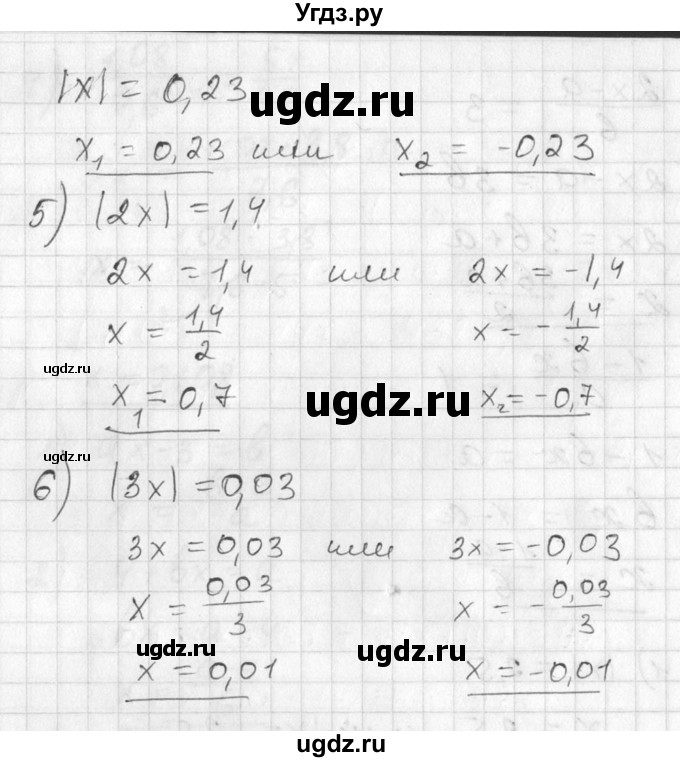 Угдз.ру
|x| = 0,23
ugdz.ru
x₁ = 0,23 или x₂ = -0,23
5) |2x| = 1,4
2x = 1,4 или 2x = -1,4
x = 1,4/2 x = - 1,4/2
ugdz.ru
x₁ = 0,7 ugdz.ru x₂ = -0,7
ugdz.ru
6) |3x| = 0,03
3x = 0,03 или 3x = -0,03
x = 0,03/3 x = - 0,03/3
ugdz.ru ugdz.ru
x = 0,01 x = -0,01
ugdz.ru